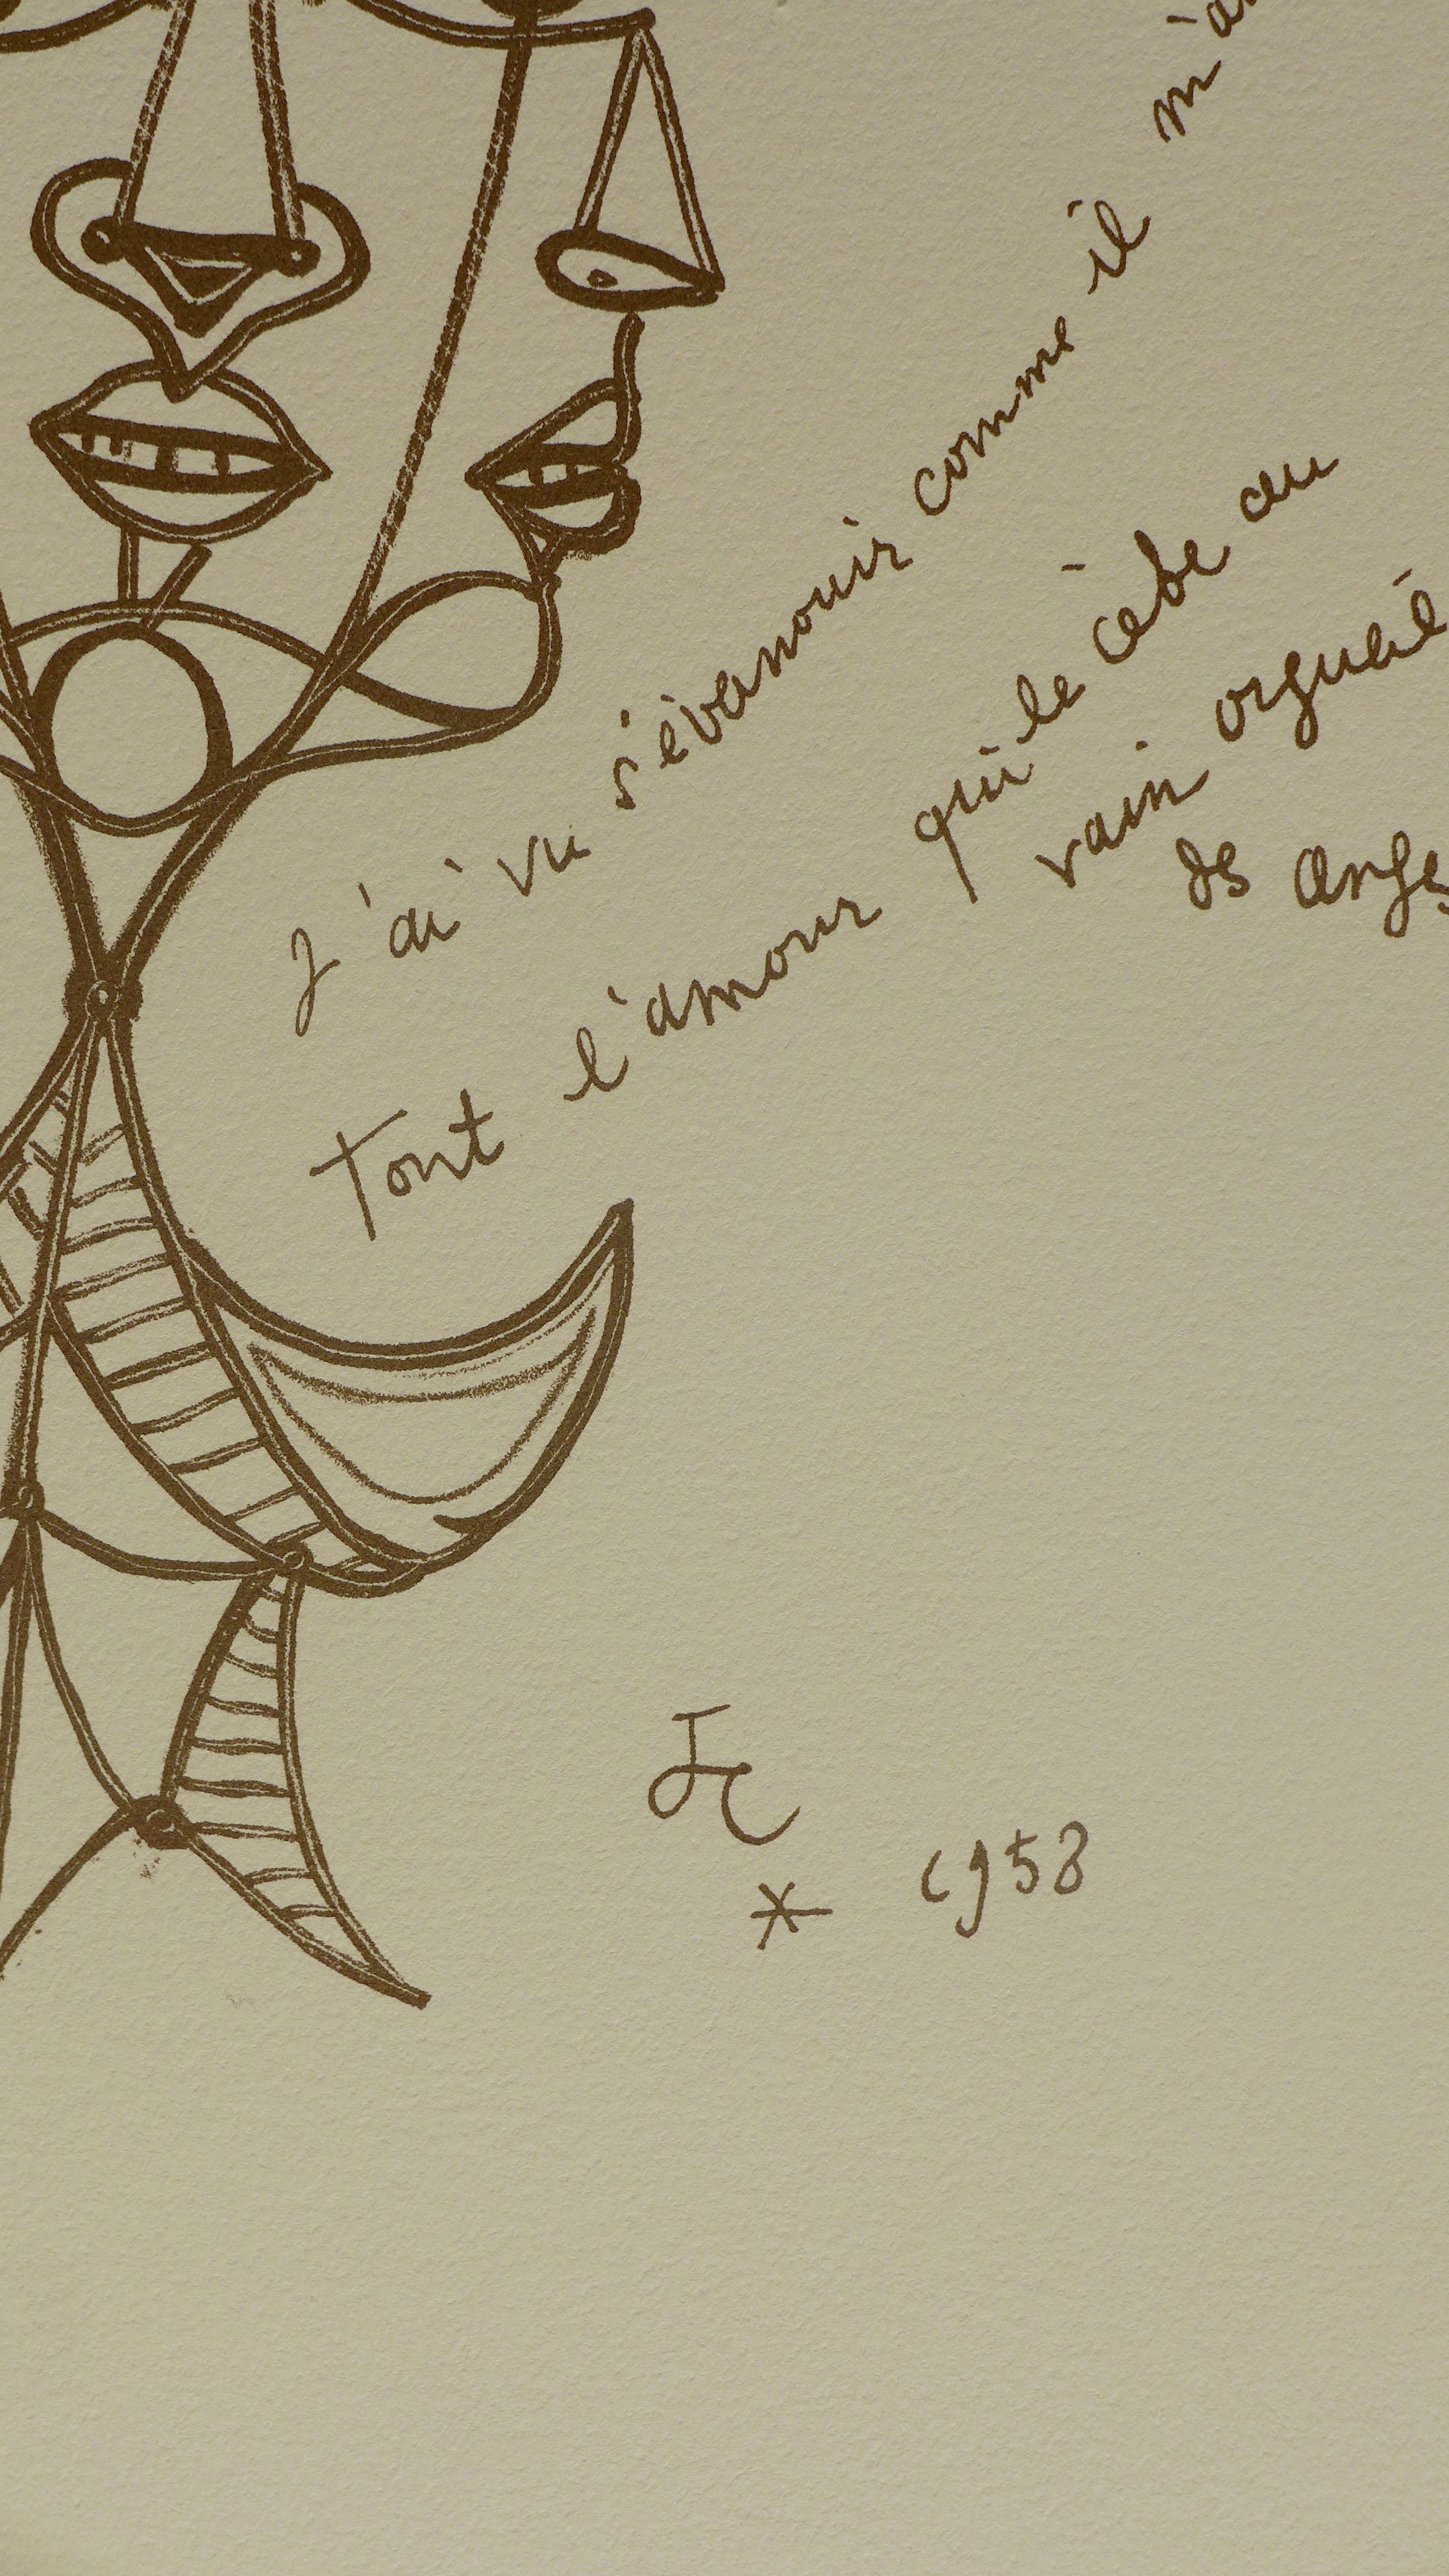 J'ai vu s'évanouir comme il
Tout l'amour qui le cède au
vain orgueil
des Anges
JC
* 1958